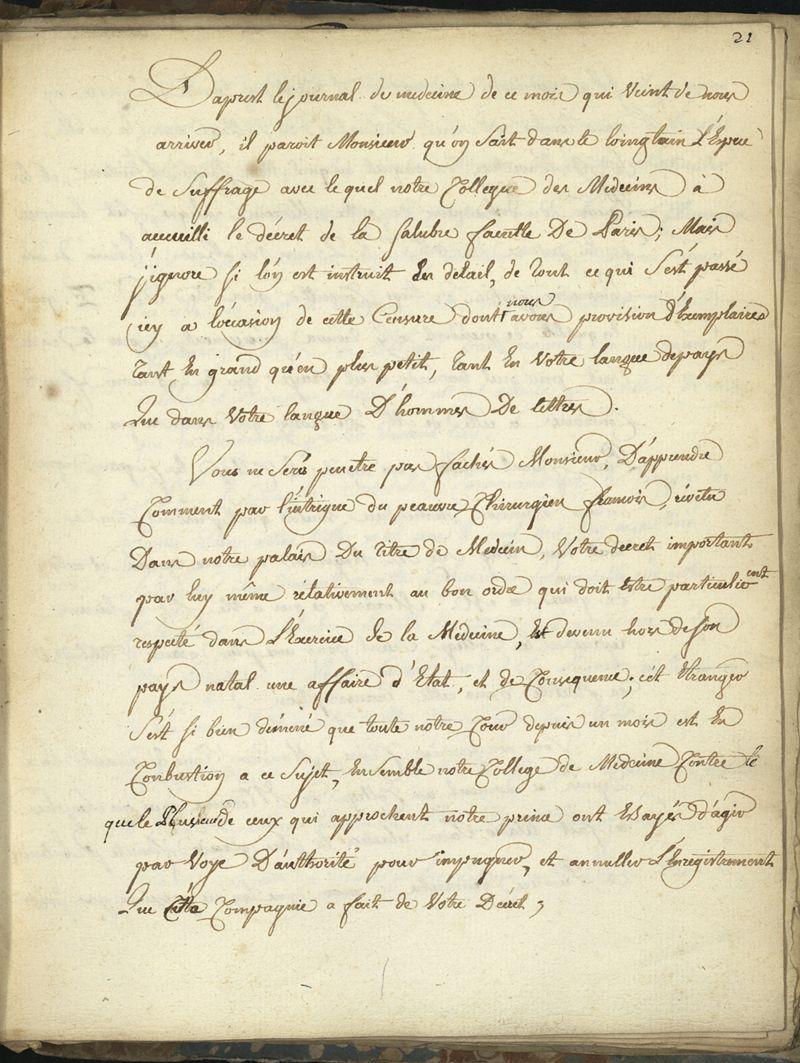 21
Daprest le journal de medecine de ce mois qui vient de nous
arriver, il paroit Monsieur qu'on sait dans le loingtain l'Espece
de suffrage avec le quel notre Collegue des Medecins à
accueilli le décret de la salubre faculte De Paris; Mais
j'ignore si l'on est instruit En détail, de tout ce qui s'est passé
icy a l'occasion de cette Censure dont nous avons provision d'Exemplaires
tant En grand qu'en plus petit, tant En Votre langue de pays
Que dans Votre langue D'hommes De lettres.
Vous ne serés peu etre pas fachés Monsieur, D'apprendre
Comment par l'intrigue du peauvre Chirurgien francois, révétu
Dans notre palais Du titre de Medecin, Votre decret important
par luy même rélativement au bon ordre qui doit Estre particulierement
respecté dans l'Exercice de la Médecine, Est devenu hors de son
pays natal une affaire d'Etat, et de Consequence; cét Etranger
s'est si bien démené que toute notre Cour depuis un mois est En
Conbustion a ce sujet, Ensemble notre College de Medecine Contre le
quel Plusieurs de ceux qui approchent notre prince ont Essayés d'agir
par Voye D'authorité pour impugner, et annuller l'Enregistrement
Que Cette Compagnie a fait de Votre Décret;